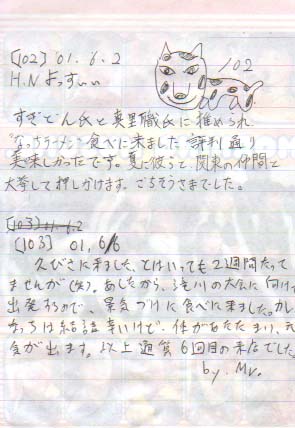 [102] '01.6.2
102
H.N よっすぃぃ
すぎどん氏と真里職氏に推められ
"なっちラーメン"食べに来ました 評判通り
美味しかったです。夏に彼らと関東の仲間と
大挙して押しかけます。ごちそうさまでした。
[103] 01.6.2
[103] 01, 6/6
久びさに来ました、とはいっても2週間たって
ませんが(笑)。あしたから、滝川の大会に向けて
出発するので、景気づけに食べに来ました。カレー
なっちは結構辛いけど、体があたたまり、元
気が出ます。以上通算6回目の来店でした
by. Mr.